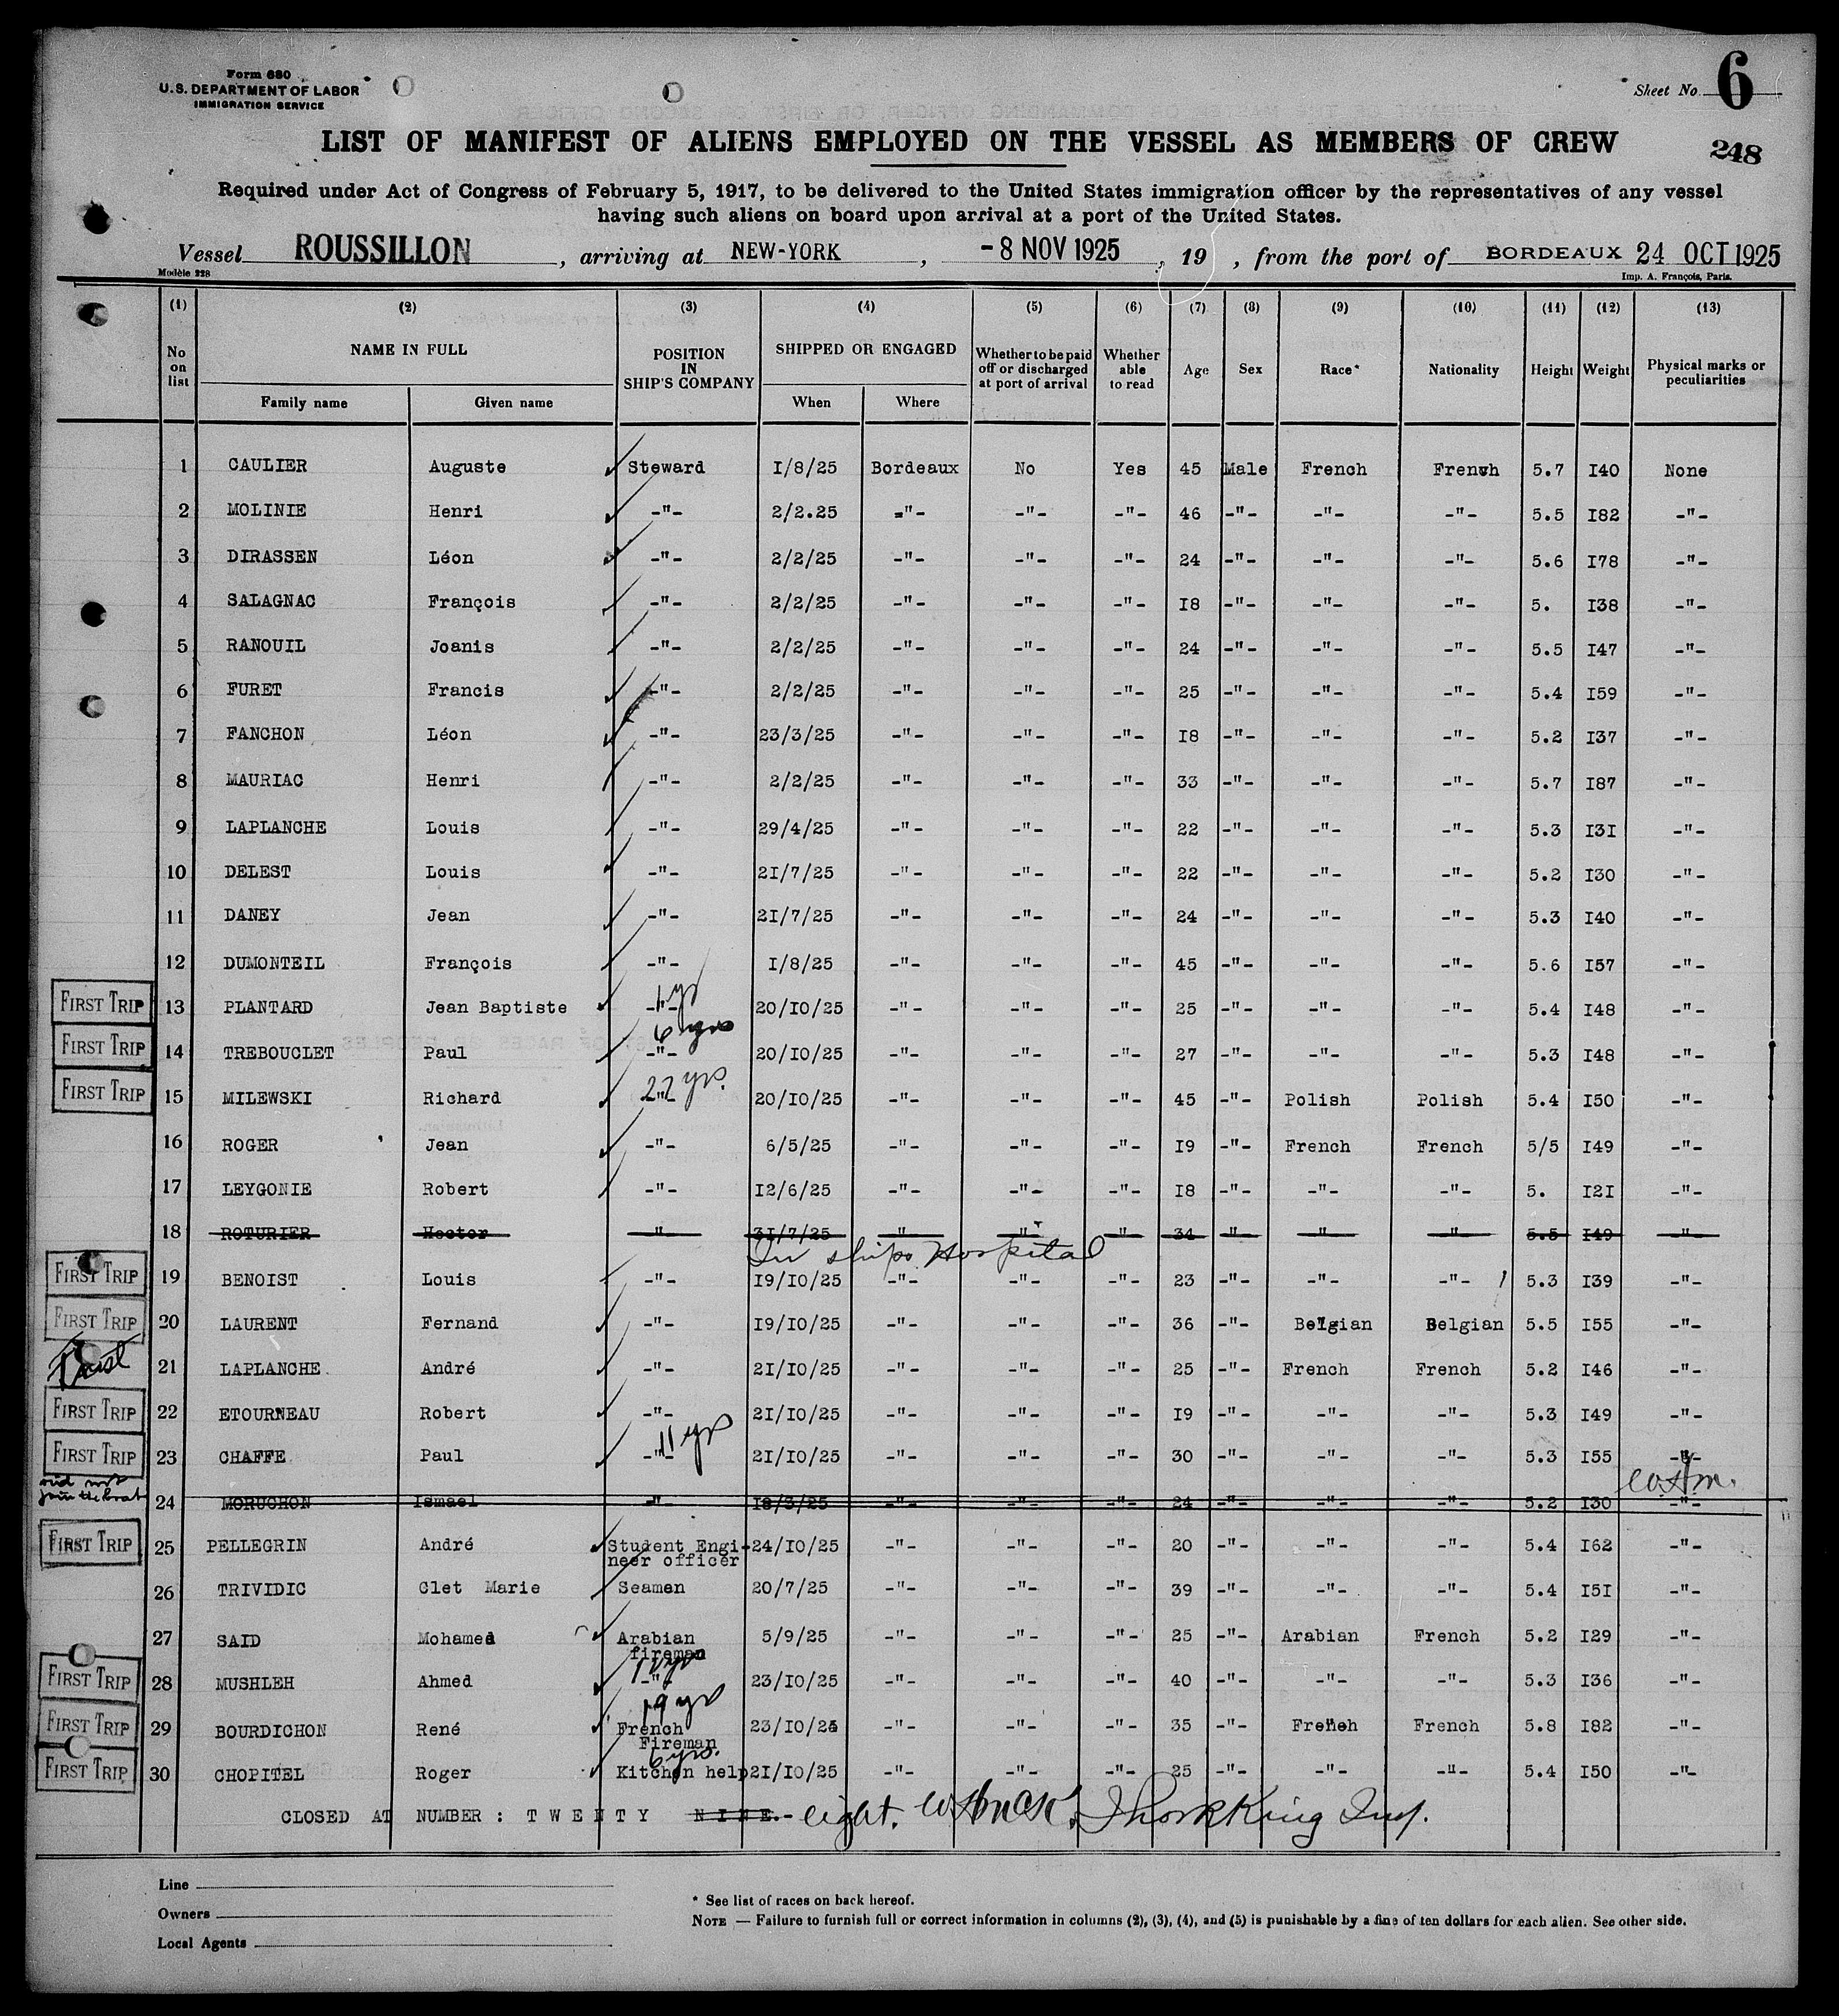 Form 680
U.S. DEPARTMENT OF LABOR
IMMIGRATION SERVICE
Sheet No. 6
248
LIST OF MANIFEST OF ALIENS EMPLOYED ON THE VESSEL AS MEMBERS OF CREW
Required under Act of Congress of February 5, 1917, to be delivered to the United States immigration officer by the representatives of any vessel
having such aliens on board upon arrival at a port of the United States.
Vessel ROUSSILLON, arriving at NEW-YORK, -8 NOV 1925, 19 , from the port of BORDEAUX 24 OCT 1925
Modèle 228
Imp. A. François, Paris.
(1) (2) (3) (4) (5) (6) (7) (8) (9) (10) (11) (12) (13)
No on list NAME IN FULL POSITION IN SHIP'S COMPANY SHIPPED OR ENGAGED Whether to be paid off or discharged at port of arrival Whether able to read Age Sex Race* Nationality Height Weight Physical marks or peculiarities
Family name Given name When Where
1 CAULIER Auguste Steward I/8/25 Bordeaux No Yes 45 Male French French 5.7 I40 None
2 MOLINIE Henri -"- 2/2.25 -"- -"- -"- 46 -"- -"- -"- 5.5 I82 -"-
3 DIRASSEN Léon -"- 2/2/25 -"- -"- -"- 24 -"- -"- -"- 5.6 I78 -"-
4 SALAGNAC François -"- 2/2/25 -"- -"- -"- I8 -"- -"- -"- 5. I38 -"-
5 RANOUIL Joanis -"- 2/2/25 -"- -"- -"- 24 -"- -"- -"- 5.5 I47 -"-
6 FURET Francis -"- 2/2/25 -"- -"- -"- 25 -"- -"- -"- 5.4 I59 -"-
7 FANCHON Léon -"- 23/3/25 -"- -"- -"- I8 -"- -"- -"- 5.2 I37 -"-
8 MAURIAC Henri -"- 2/2/25 -"- -"- -"- 33 -"- -"- -"- 5.7 I87 -"-
9 LAPLANCHE Louis -"- 29/4/25 -"- -"- -"- 22 -"- -"- -"- 5.3 I3I -"-
10 DELEST Louis -"- 2I/7/25 -"- -"- -"- 22 -"- -"- -"- 5.2 I30 -"-
11 DANEY Jean -"- 2I/7/25 -"- -"- -"- 24 -"- -"- -"- 5.3 I40 -"-
12 DUMONTEIL François -"- I/8/25 -"- -"- -"- 45 -"- -"- -"- 5.6 I57 -"-
1 yr
FIRST TRIP 13 PLANTARD Jean Baptiste -"- 20/I0/25 -"- -"- -"- 25 -"- -"- -"- 5.4 I48 -"-
6 yrs
FIRST TRIP 14 TREBOUCLET Paul -"- 20/I0/25 -"- -"- -"- 27 -"- -"- -"- 5.3 I48 -"-
22 yrs.
FIRST TRIP 15 MILEWSKI Richard -"- 20/I0/25 -"- -"- -"- 45 -"- Polish Polish 5.4 I50 -"-
16 ROGER Jean -"- 6/5/25 -"- -"- -"- I9 -"- French French 5/5 I49 -"-
17 LEYGONIE Robert -"- I2/6/25 -"- -"- -"- I8 -"- -"- -"- 5. I2I -"-
18 ROTURIER Hector -"- 3I/7/25 -"- -"- -"- 34 -"- -"- -"- 5.5 I49 -"-
In ships Hospital
FIRST TRIP 19 BENOIST Louis -"- I9/I0/25 -"- -"- -"- 23 -"- -"- -"- 5.3 I39 -"-
FIRST TRIP 20 LAURENT Fernand -"- I9/I0/25 -"- -"- -"- 36 -"- Belgian Belgian 5.5 I55 -"-
21 LAPLANCHE André -"- 2I/I0/25 -"- -"- -"- 25 -"- French French 5.2 I46 -"-
FIRST TRIP 22 ETOURNEAU Robert -"- 2I/I0/25 -"- -"- -"- I9 -"- -"- -"- 5.3 I49 -"-
11 yrs
FIRST TRIP 23 CHAFFE Paul -"- 2I/I0/25 -"- -"- -"- 30 -"- -"- -"- 5.3 I55 -"-
did not
join the boat
24 MORUCHON Ismael -"- I8/3/25 -"- -"- -"- 24 -"- -"- -"- 5.2 I30 -"-
FIRST TRIP 25 PELLEGRIN André Student Engi- 24/I0/25 -"- -"- -"- 20 -"- -"- -"- 5.4 I62 -"-
neer officer
26 TRIVIDIC Clet Marie Seamen 20/7/25 -"- -"- -"- 39 -"- -"- -"- 5.4 I5I -"-
27 SAID Mohamed Arabian 5/9/25 -"- -"- -"- 25 -"- Arabian French 5.2 I29 -"-
fireman
FIRST TRIP 28 MUSHLEH Ahmed -"- 23/I0/25 -"- -"- -"- 40 -"- -"- -"- 5.3 I36 -"-
19 yrs
FIRST TRIP 29 BOURDICHON René French 23/I0/25 -"- -"- -"- 35 -"- French French 5.8 I82 -"-
Fireman
6 yrs.
FIRST TRIP 30 CHOPITEL Roger Kitchen help 2I/I0/25 -"- -"- -"- 25 -"- -"- -"- 5.4 I50 -"-
CLOSED AT NUMBER : TWENTY NINE.- eight.
Line
Owners
Local Agents
* See list of races on back hereof.
NOTE — Failure to furnish full or correct information in columns (2), (3), (4), and (5) is punishable by a fine of ten dollars for each alien. See other side.